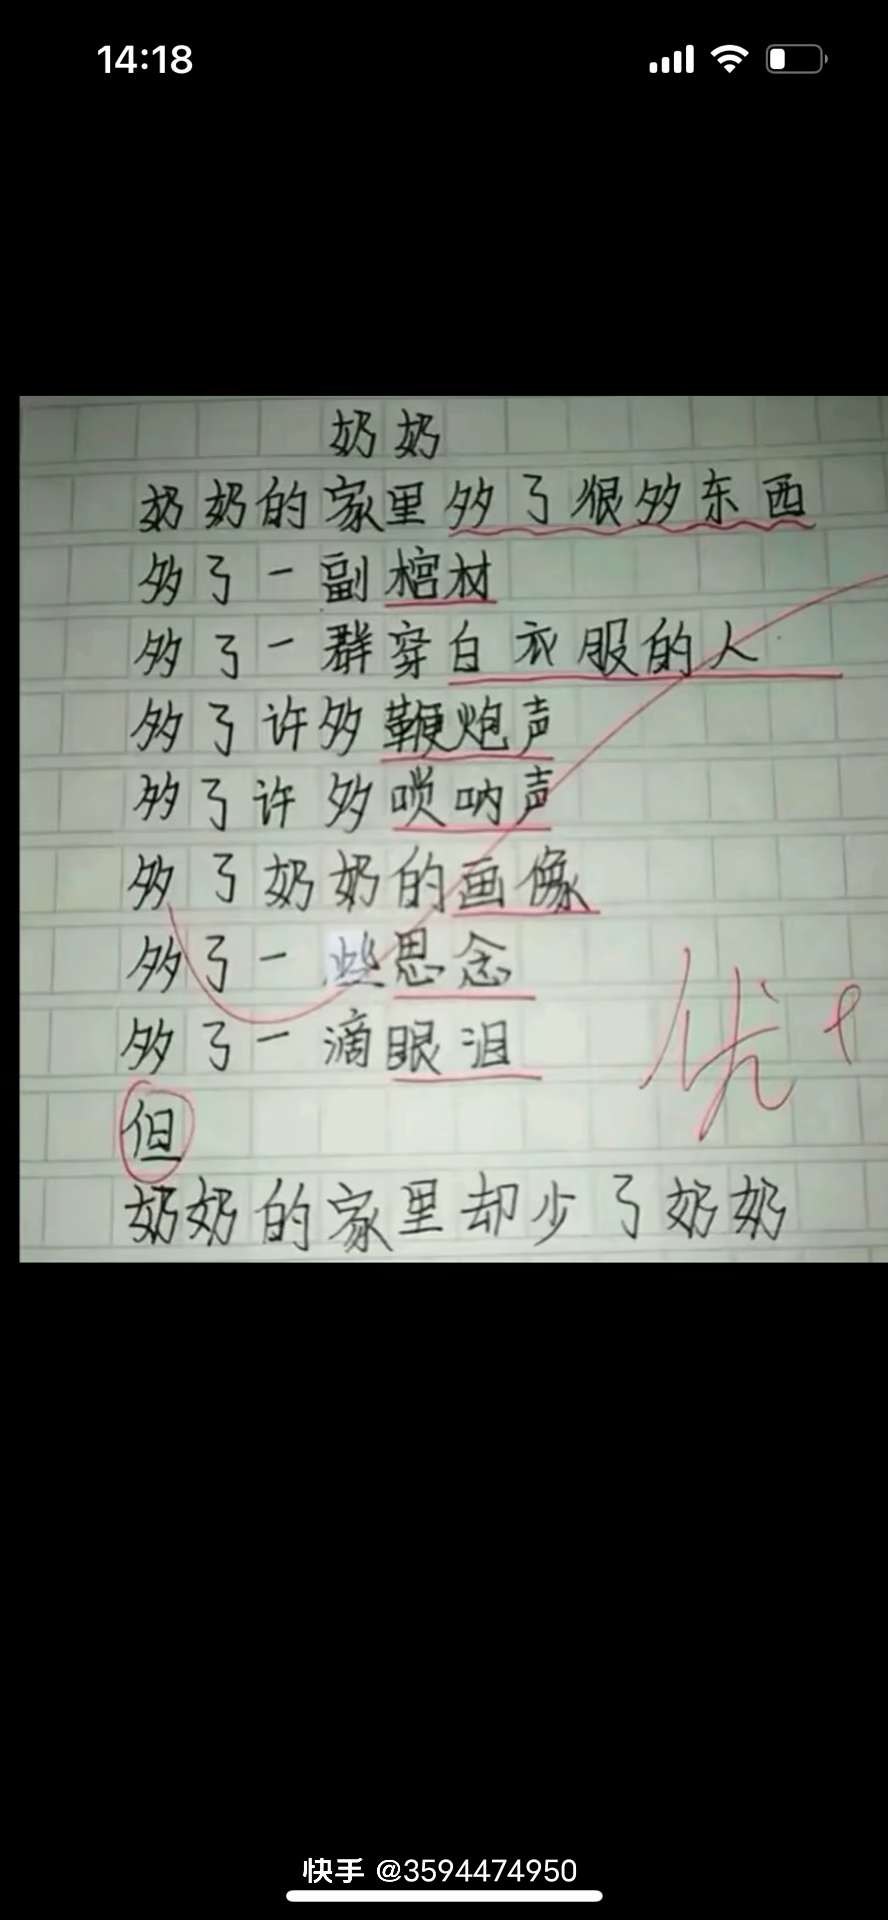 14:18
奶奶
奶奶的家里多了很多东西
多了一副棺材
多了一群穿白衣服的人
多了许多鞭炮声
多了许多唢呐声
多了奶奶的画像
多了一些思念
多了一滴眼泪
优
但
奶奶的家里却少了奶奶
快手 @3594474950